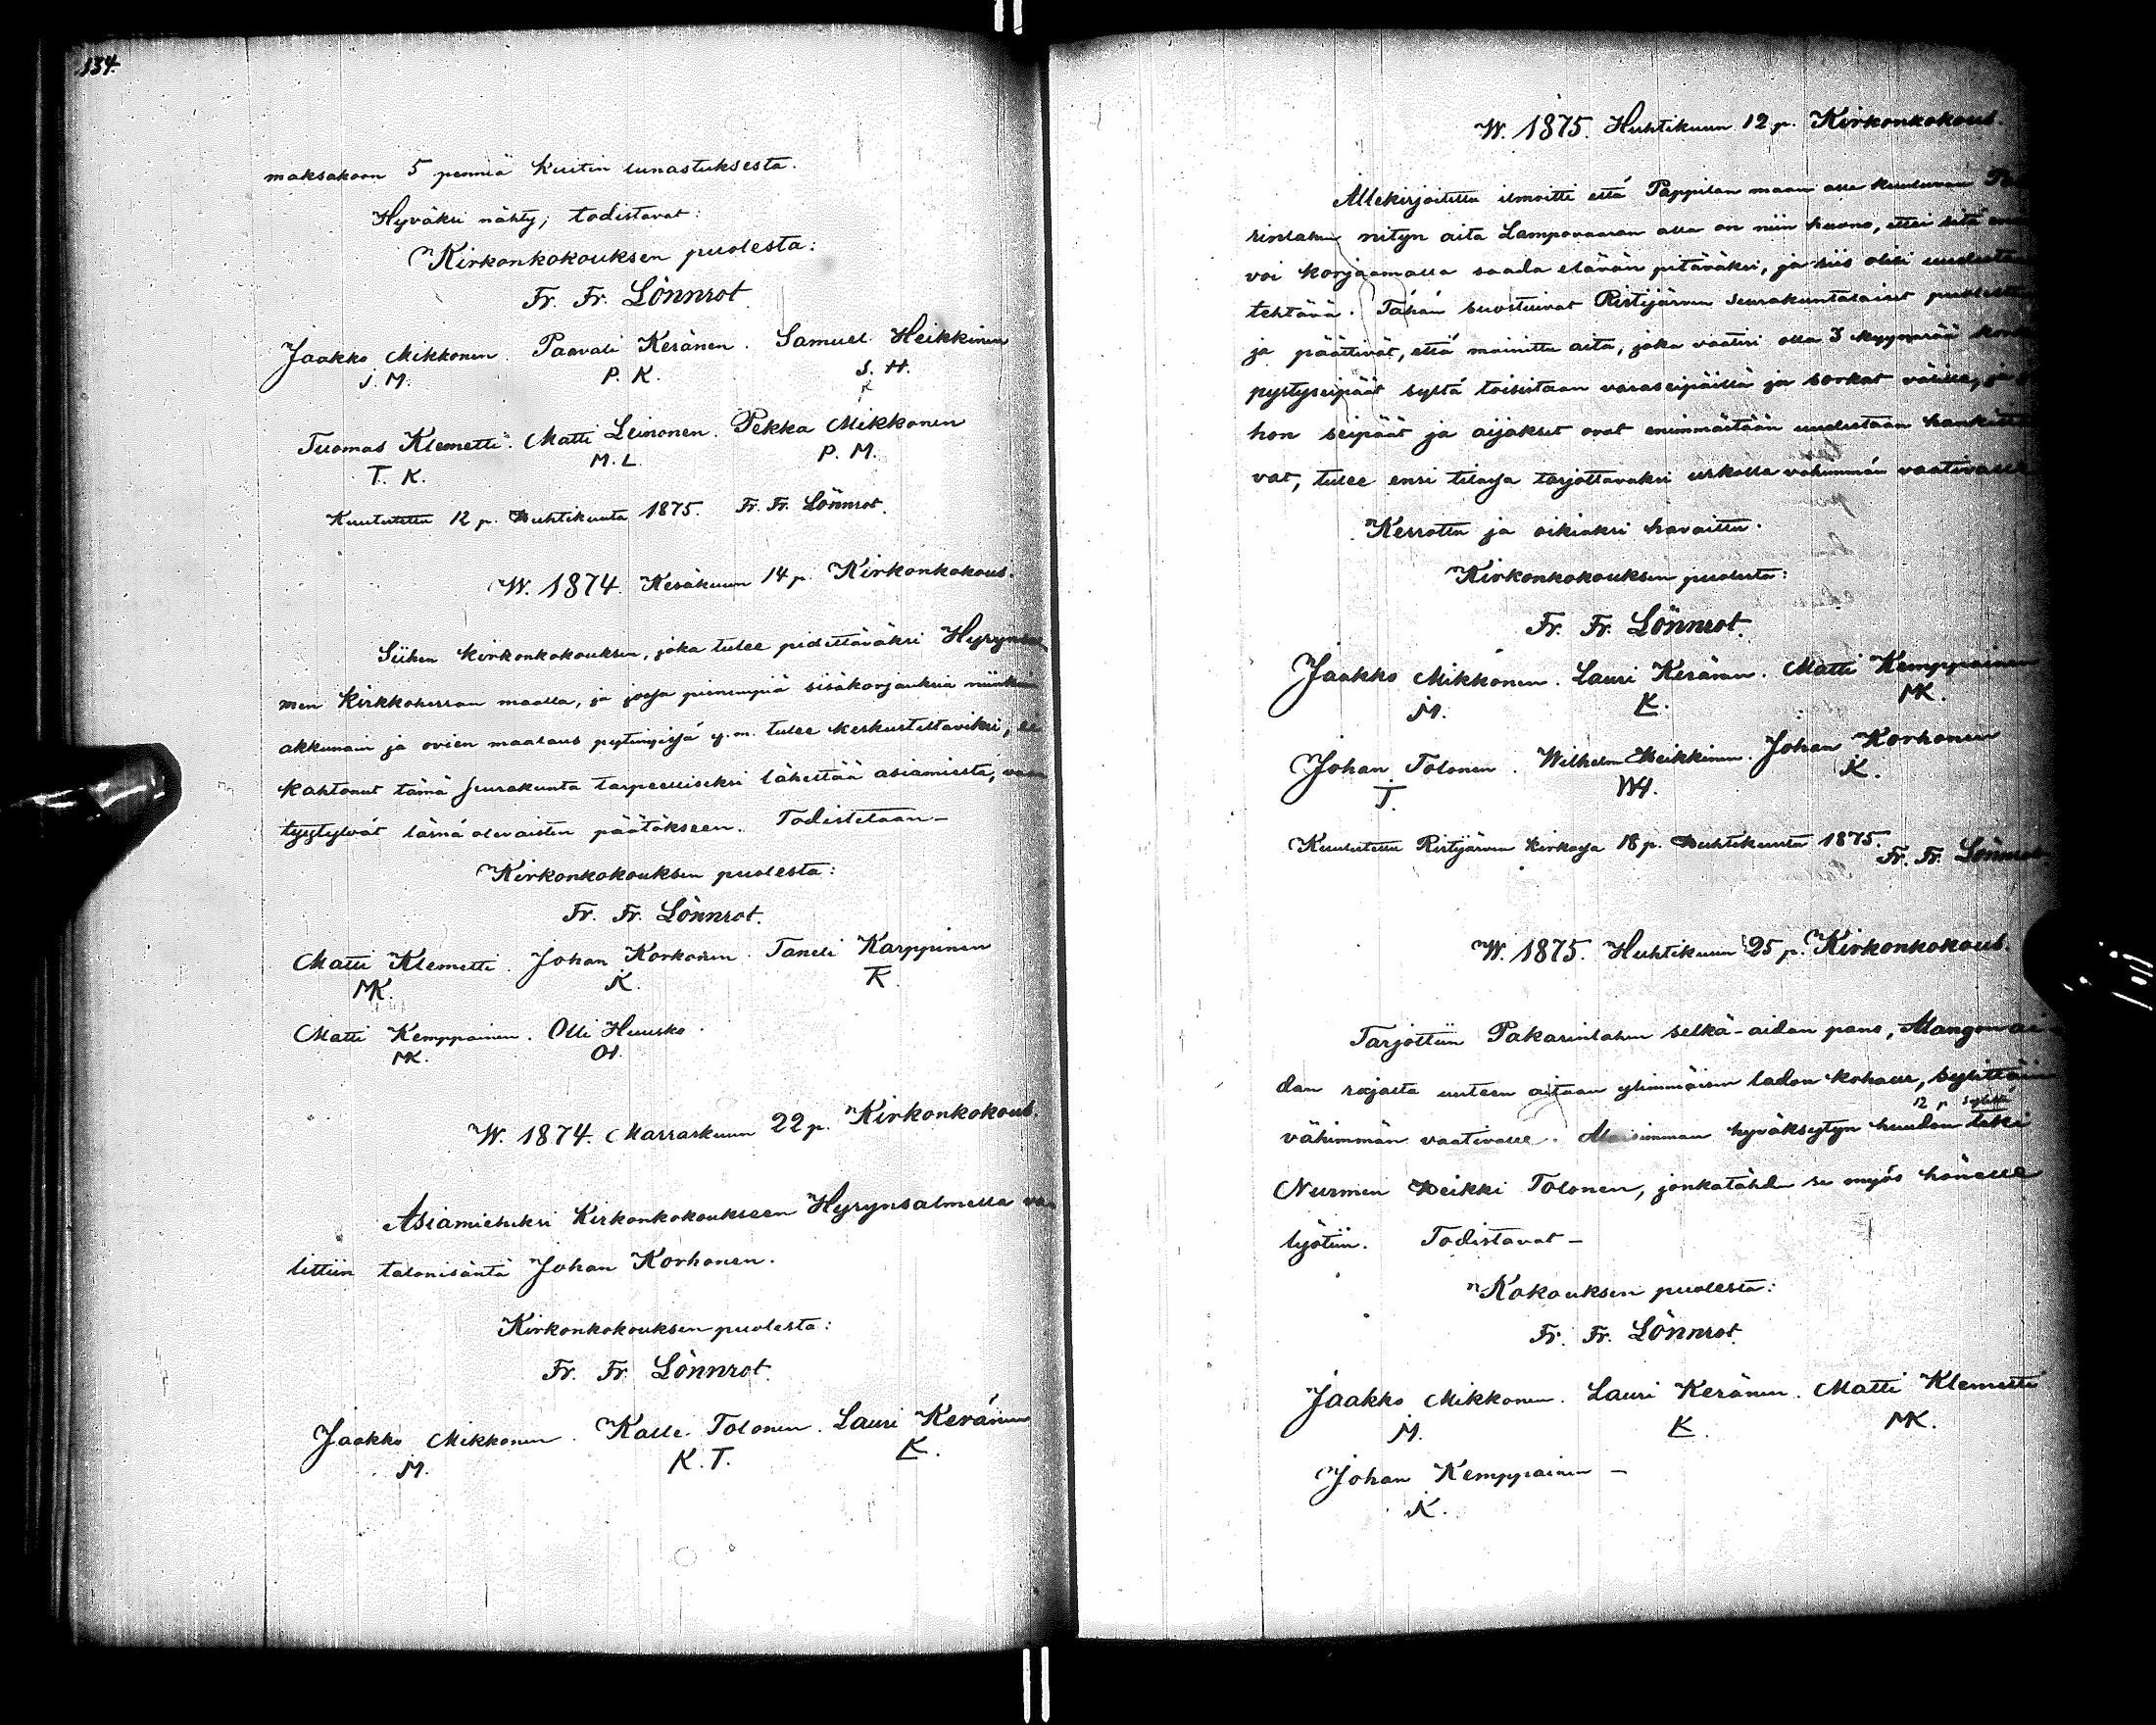 134.
maksakoon 5 penniä kuitin lunastuksesta.
Hyväksi nähty; todistavat:
Kirkonkokouksen puolesta:
Fr. Fr. Lönnrot.
Jaakko Mikkonen. Paavali Keränen. Samuel Heikkinen
J. M. P. K. S. H.
Tuomas Klemetti. Matti Leinonen. Pekka Mikkonen
T. K. M. L. P. M.
Kuulutettu 12 p. Huhtikuuta 1875. Fr. Fr. Lönnrot.
W. 1874. Kesäkuun 14 p. Kirkonkokous.
Siihen kirkonkokouksen, joka tulee pidettäväksi
men Kirkkoherran maalla, ja jossa pienempiä sisäkorjauksia niinkuin
akkunain ja ovien maalaus y. m. tulee keskusteltaviksi, ei
katsonut tämä seurakunta tarpeelliseksi lähettää asiamiestä, vaan
tyytyivät läsnä olevaisten päätökseen. Todistetaan —
Kirkonkokouksen puolesta:
Fr. Fr. Lönnrot.
Matti Klemetti. Johan Korhonen. Taneli Karppinen
MK. JK. TK.
Matti Kemppainen. Olli Huusko.
MK. OH.
W. 1874. Marraskuun 22 p. Kirkonkokous.
Asiamieheksi Kirkonkokoukseen Hyrynsalmella va
littiin talonisäntä Johan Korhonen.
Kirkonkokouksen puolesta:
Fr. Fr. Lönnrot.
Jaakko Mikkonen. Kalle Tolonen. Lauri Keränen
JM. K. T. LK.
W. 1875. Huhtikuun 12 p. Kirkonkokous.
Allekirjoitettu ilmoitti että Pappilan maan alle kuuluvan
rinlahen nityn aita Lampovaaran alla on niin huono, ettei sitä
voi korjaamalla saada elävän pitäväksi, ja siis olisi
tehtävä. Tähän suostuivat Ristijärven seurakuntalaiset
ja päättivät, että mainittu aita, joka vaatisi olla 3 kyynärää
pystyseipäät syltä toisistaan varaseipäillä ja sorkat välillä,
hon seipäät ja aijakset ovat enimmästään uudestaan
vat, tulee ensi tilassa tarjottavaksi urkalla vähimmän vaativalle
Kerrottu ja oikiaksi havaittu.
Kirkonkokouksen puolesta:
Fr. Fr. Lönnrot.
Jaakko Mikkonen. Lauri Keränen. Matti Kemppainen
JM. LK. MK.
Johan Tolonen. Wilhelm Heikkinen. Johan Korhonen
JT. WH. JK.
Kuulutettu Ristijärven kirkossa 18 p. Huhtikuuta 1875.
Fr. Fr. Lönnrot.
W. 1875. Huhtikuun 25 p. Kirkonkokous.
Tarjottiin Pakarinlahen selkä-aidan pano,
dan rajasta uuteen aitaan ylimmäisen ladon kohalle, sylittäin
12 p. syleltä
vähimmän vaativalle. hyväksytyn huudon teki
Nurmen Heikki Tolonen, jonkatähden se myös hänelle
lyötiin. Todistavat —
Kokouksen puolesta:
Fr. Fr. Lönnrot.
Jaakko Mikkonen. Lauri Keränen. Matti Klemetti
JM. LK. MK.
Johan Kemppainen —
JK.